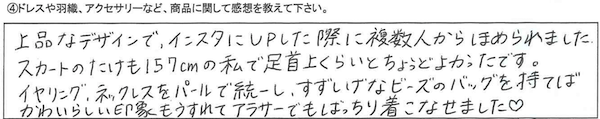 ④ドレスや羽織、アクセサリーなど、商品に関して感想を教えて下さい。
上品なデザインで、インスタにUPした際に複数人からほめられました。
スカートのたけも157cmの私で足首上くらいとちょうどよかったです。
イヤリング、ネックレスをパールで統一し、すずしげなビーズのバッグを持てば
かわいらしい印象もうすれてアラサーでもばっちり着こなせました♡